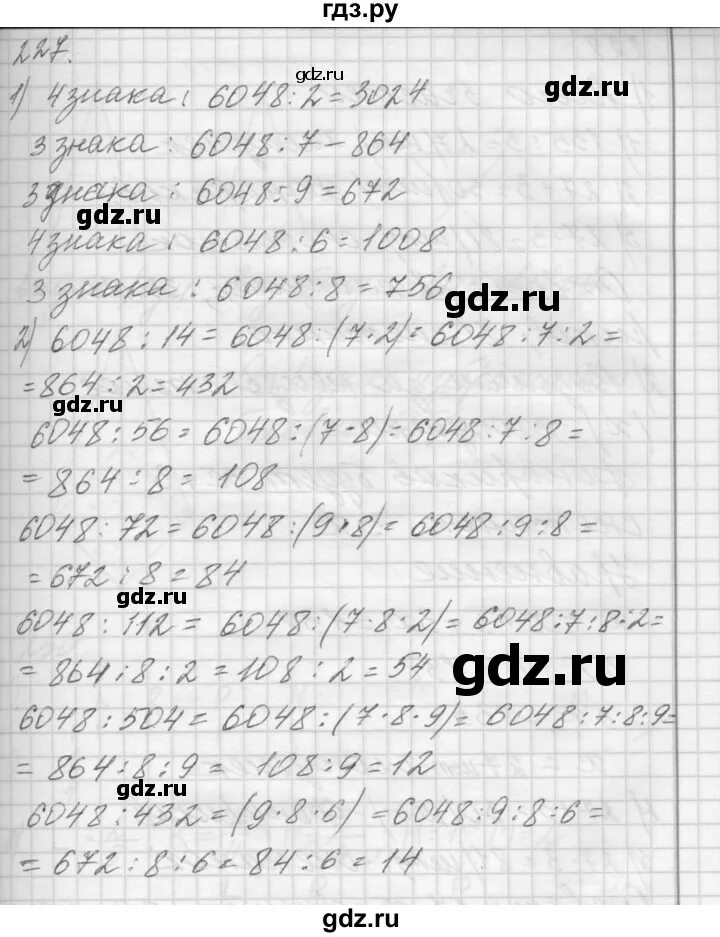 гдз.ру
227.
1) 4 знака : 6048 : 2 = 3024
3 знака : 6048 : 7 - 864
3 знака : 6048 : 9 = 672
4 знака : 6048 : 6 = 1008
3 знака : 6048 : 8 = 756
2) 6048 : 14 = 6048 : (7·2) = 6048 : 7 : 2 =
= 864 : 2 = 432
6048 : 56 = 6048 : (7·8) = 6048 : 7 : 8 =
= 864 : 8 = 108
6048 : 72 = 6048 : (9·8) = 6048 : 9 : 8 =
= 672 : 8 = 84
6048 : 112 = 6048 : (7·8·2) = 6048 : 7 : 8 : 2 =
= 864 : 8 : 2 = 108 : 2 = 54
6048 : 504 = 6048 : (7·8·9) = 6048 : 7 : 8 : 9 =
= 864 : 8 : 9 = 108 : 9 = 12
6048 : 432 = (9·8·6) = 6048 : 9 : 8 : 6 =
= 672 : 8 : 6 = 84 : 6 = 14
gdz.ru
gdz.ru
gdz.ru
gdz.ru
gdz.ru
gdz.ru
gdz.ru
gdz.ru
gdz.ru